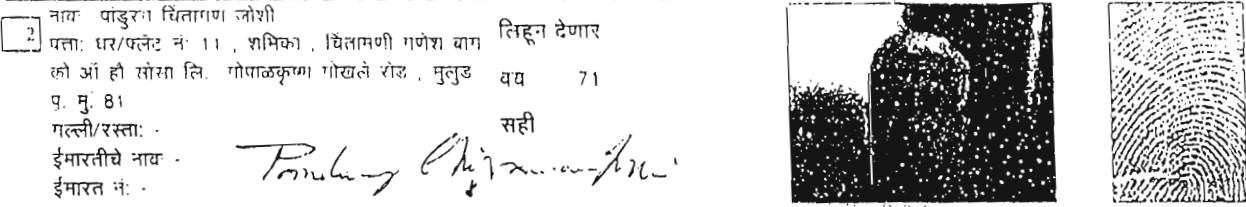 2
नावः पांडुरंग चिंतामण जोशी
पत्ता: घर/फ्लॅट नं 11 , शमिका , चिंतामणी गणेश बाग
को ऑ हौ सोसा लि. गोपाळकृष्ण गोखले रोड , मुलुंड
पू. मुं. 81
गल्ली/रस्ता: -
ईमारतीचे नाव -
ईमारत नं: -
लिहून देणार
वय 71
सही